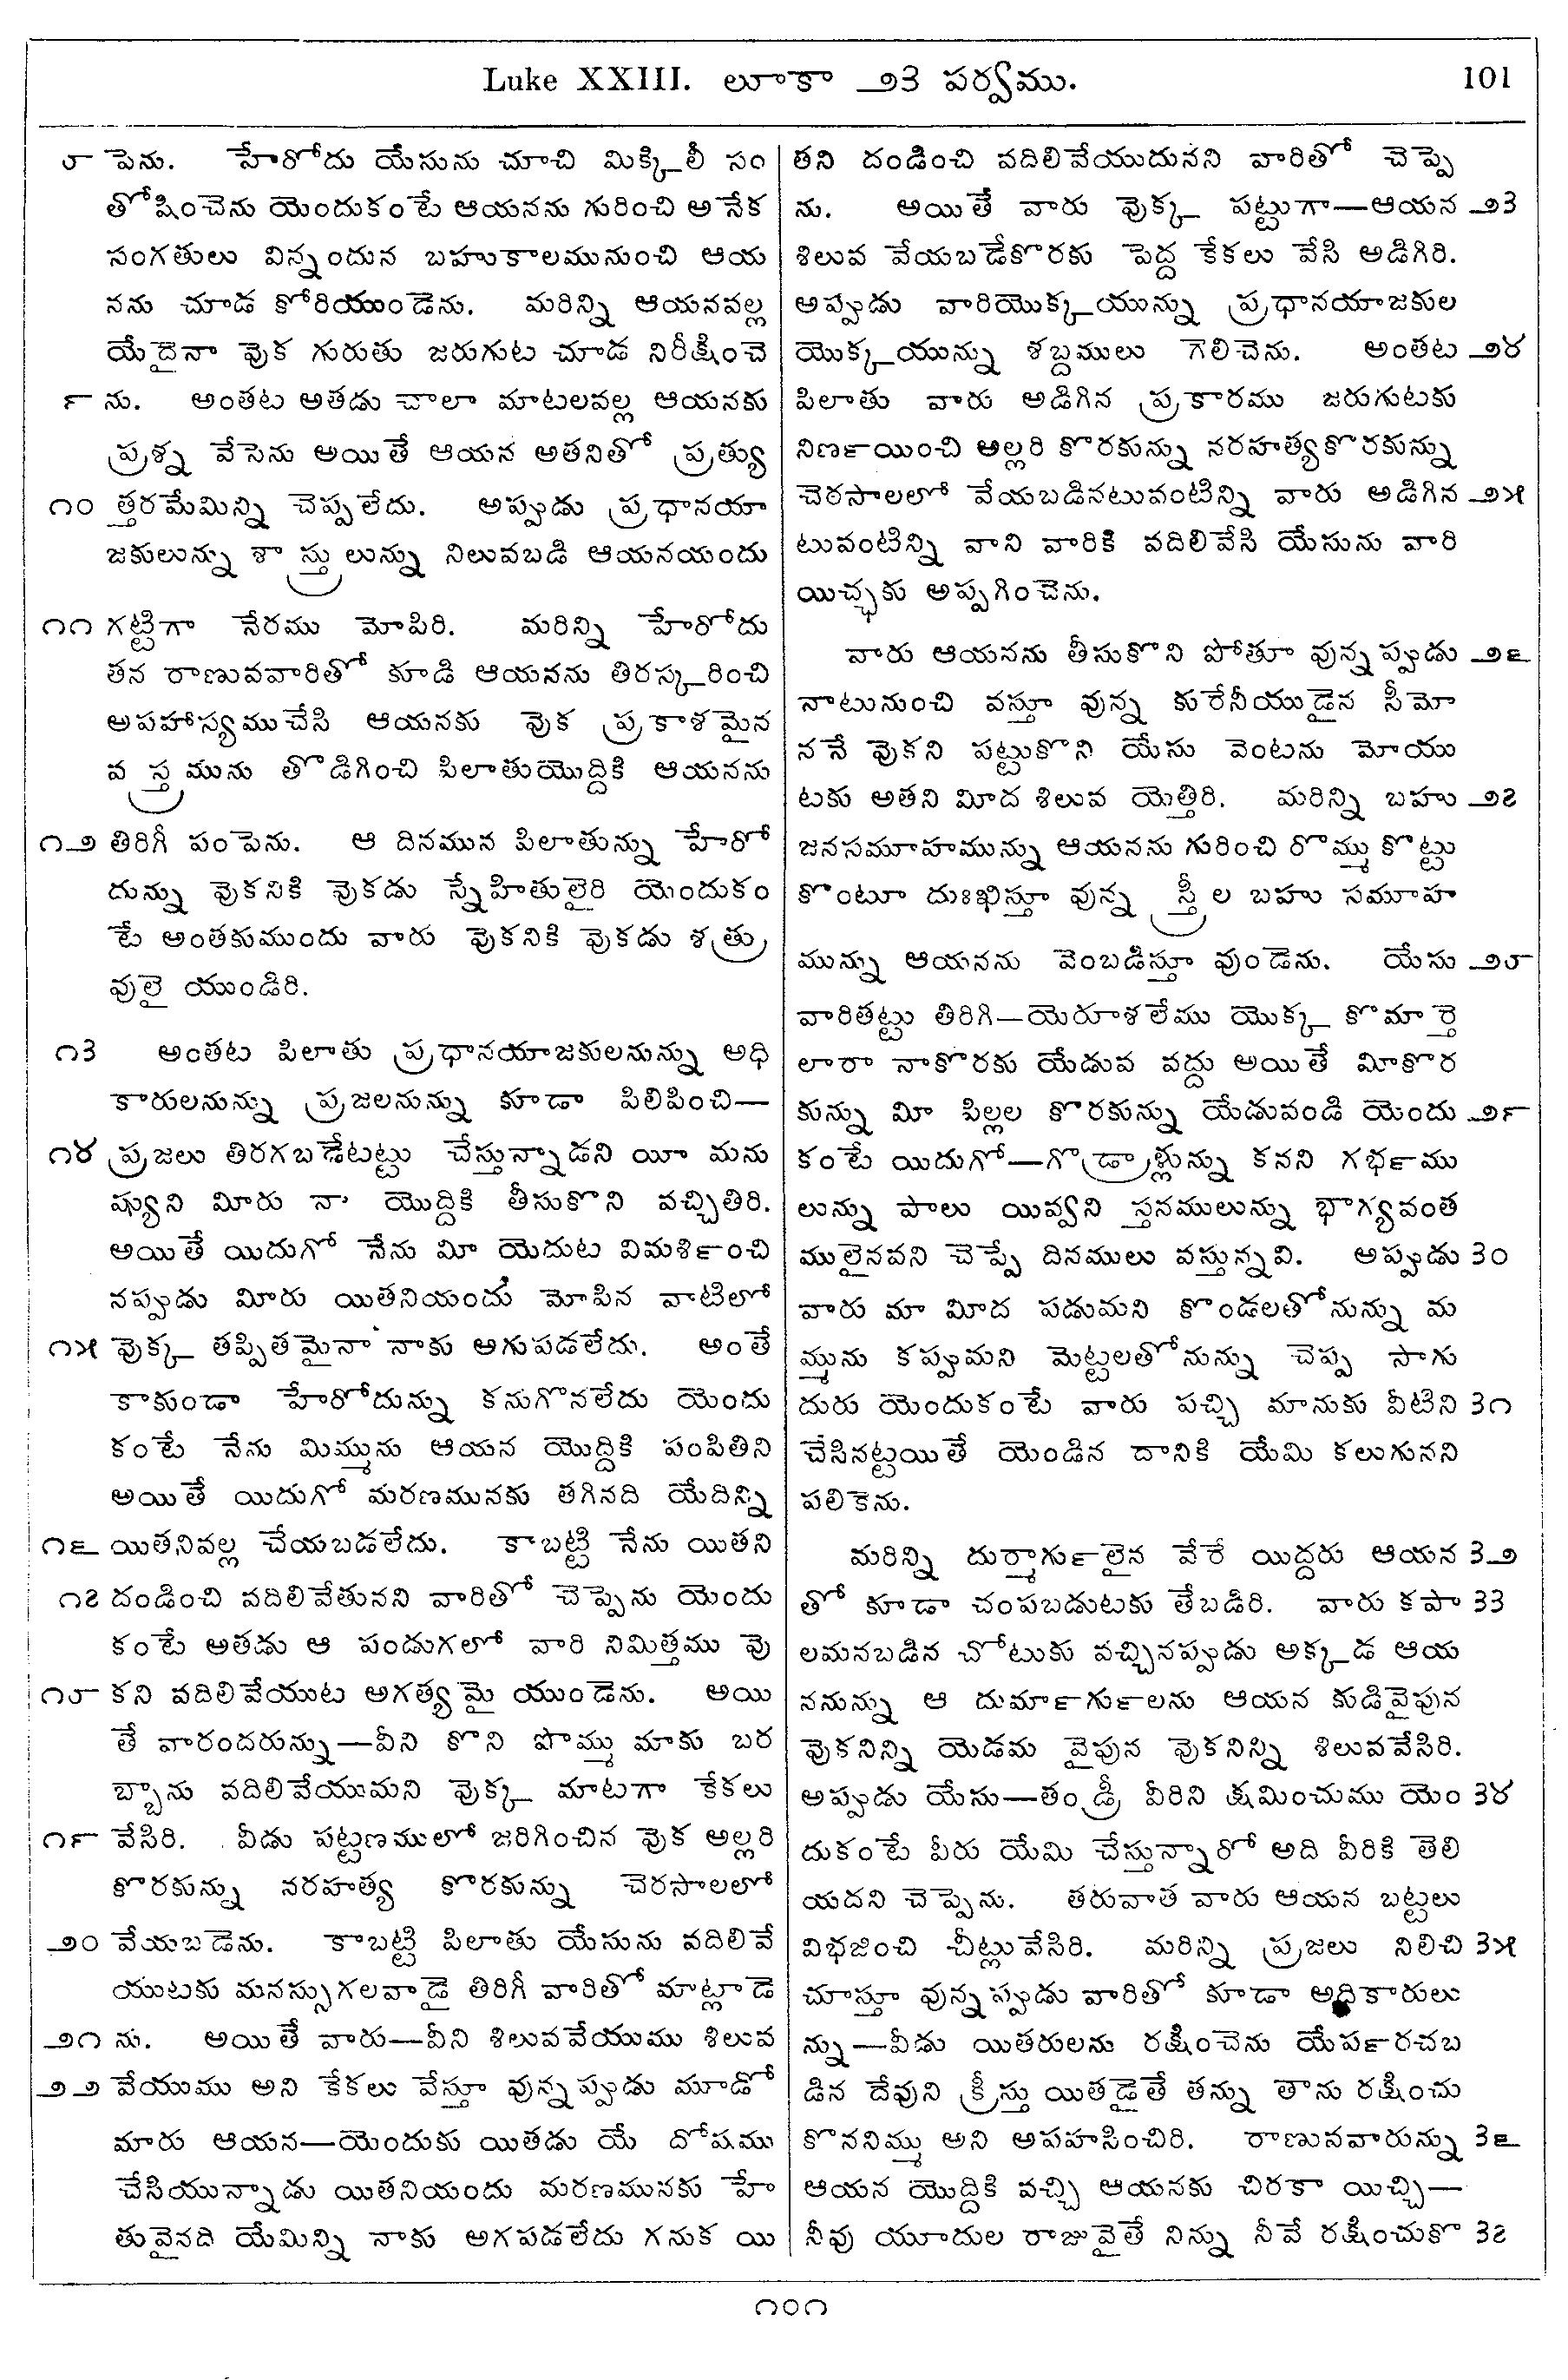 Luke XXIII. లూకా ౨౩ పర్వము. 101
౮ పెను. హేరోదు యేసును చూచి మిక్కిలీ సం
తోషించెను యెందుకంటే ఆయనను గురించి అనేక
సంగతులు విన్నందున బహుకాలమునుంచి ఆయ
నను చూడ కోరియుండెను. మరిన్ని ఆయనవల్ల
యేదైనా వుక గురుతు జరుగుట చూడ నిరీక్షించె
౯ ను. అంతట అతడు చాలా మాటలవల్ల ఆయనకు
ప్రశ్న వేసెను అయితే ఆయన అతనితో ప్రత్యు
౧౦ త్తరమేమిన్ని చెప్పలేదు. అప్పుడు ప్రధానయా
జకులున్ను శాస్త్రులున్ను నిలువబడి ఆయనయందు
౧౧ గట్టిగా నేరము మోపిరి. మరిన్ని హేరోదు
తన రాణువవారితో కూడి ఆయనను తిరస్కరించి
అపహాస్యముచేసి ఆయనకు వుక ప్రకాశమైన
వస్త్రమును తొడిగించి పిలాతుయొద్దికి ఆయనను
౧౨ తిరిగీ పంపెను. ఆ దినమున పిలాతున్ను హేరో
దున్ను వుకనికి వుకడు స్నేహితులైరి యెందుకం
టే అంతకుముందు వారు వుకనికి వుకడు శత్రు
వులై యుండిరి.
౧౩ అంతట పిలాతు ప్రధానయాజకులనున్ను అధి
కారులనున్ను ప్రజలనున్ను కూడా పిలిపించి—
౧౪ ప్రజలు తిరగబడేటట్టు చేస్తున్నాడని యీ మను
ష్యుని మీరు నా యొద్దికి తీసుకొని వచ్చితిరి.
అయితే యిదుగో నేను మీ యెదుట విమశిꣳంచి
నప్పుడు మీరు యితనియందు మోపిన వాటిలో
౧౫ వుక్క తప్పితమైనా నాకు అగుపడలేదు. అంతే
కాకుండా హేరోదున్ను కనుగొనలేదు యెందు
కంటే నేను మిమ్మును ఆయన యొద్దికి పంపితిని
అయితే యిదుగో మరణమునకు తగినది యేదిన్ని
౧౬ యితనివల్ల చేయబడలేదు. కాబట్టి నేను యితని
౧౭ దండించి వదిలివేతునని వారితో చెప్పెను యెందు
కంటే అతడు ఆ పండుగలో వారి నిమిత్తము వు
౧౮ కని వదిలివేయుట అగత్యమై యుండెను. అయి
తే వారందరున్ను—వీని కొని పొమ్ము మాకు బర
బ్బాను వదిలివేయుమని వుక్క మాటగా కేకలు
౧౯ వేసిరి. వీడు పట్టణములో జరిగించిన వుక అల్లరి
కొరకున్ను నరహత్య కొరకున్ను చెరసాలలో
౨౦ వేయబడెను. కాబట్టి పిలాతు యేసును వదిలివే
యుటకు మనస్సుగలవాడై తిరిగీ వారితో మాట్లాడె
౨౧ ను. అయితే వారు—వీని శిలువవేయుము శిలువ
౨౨ వేయుము అని కేకలు వేస్తూ వున్నప్పుడు మూడో
మారు ఆయన—యెందుకు యితడు యే దోషము
చేసియున్నాడు యితనియందు మరణమునకు హే
తువైనది యేమిన్ని నాకు అగపడలేదు గనుక యి
తని దండించి వదిలివేయుదునని వారితో చెప్పె
ను. అయితే వారు వుక్క పట్టుగా—ఆయన ౨౩
శిలువ వేయబడేకొరకు పెద్ద కేకలు వేసి అడిగిరి.
అప్పుడు వారియొక్కయున్ను ప్రధానయాజకుల
యొక్కయున్ను శబ్దములు గెలిచెను. అంతట ౨౪
పిలాతు వారు అడిగిన ప్రకారము జరుగుటకు
నిర్ణయించి అల్లరి కొరకున్ను నరహత్యకొరకున్ను
చెరసాలలో వేయబడినటువంటిన్ని వారు అడిగిన ౨౫
టువంటిన్ని వాని వారికి వదిలివేసి యేసును వారి
యిచ్ఛకు అప్పగించెను.
వారు ఆయనను తీసుకొని పోతూ వున్నప్పుడు ౨౬
నాటునుంచి వస్తూ వున్న కురేనీయుడైన సీమో
ననే వుకని పట్టుకొని యేసు వెంటను మోయు
టకు అతని మీద శిలువ యెత్తిరి. మరిన్ని బహు ౨౭
జనసమూహమున్ను ఆయనను గురించి రొమ్ము కొట్టు
కొంటూ దుఃఖిస్తూ వున్న స్త్రీల బహు సమూహ
మున్ను ఆయనను వెంబడిస్తూ వుండెను. యేసు ౨౮
వారితట్టు తిరిగి—యెరూశలేము యొక్క కొమార్తె
లారా నాకొరకు యేడువ వద్దు అయితే మీకొర
కున్ను మీ పిల్లల కొరకున్ను యేడువండి యెందు ౨౯
కంటే యిదుగో—గొడ్రాళ్లున్ను కనని గర్భము
లున్ను పాలు యివ్వని స్తనములున్ను భాగ్యవంత
ములైనవని చెప్పే దినములు వస్తున్నవి. అప్పుడు ౩౦
వారు మా మీద పడుమని కొండలతోనున్ను మ
మ్మును కప్పుమని మెట్టలతోనున్ను చెప్ప సాగు
దురు యెందుకంటే వారు పచ్చి మానుకు వీటిని ౩౧
చేసినట్టయితే యెండిన దానికి యేమి కలుగునని
పలికెను.
మరిన్ని దుర్మార్గులైన వేరే యిద్దరు ఆయన ౩౨
తో కూడా చంపబడుటకు తేబడిరి. వారు కపా ౩౩
లమనబడిన చోటుకు వచ్చినప్పుడు అక్కడ ఆయ
ననున్ను ఆ దుర్మార్గులను ఆయన కుడివైపున
వుకనిన్ని యెడమ వైపున వుకనిన్ని శిలువవేసిరి.
అప్పుడు యేసు—తండ్రీ వీరిని క్షమించుము యెం ౩౪
దుకంటే వీరు యేమి చేస్తున్నారో అది వీరికి తెలి
యదని చెప్పెను. తరువాత వారు ఆయన బట్టలు
విభజించి చీట్లువేసిరి. మరిన్ని ప్రజలు నిలిచి ౩౫
చూస్తూ వున్నప్పుడు వారితో కూడా అధికారులు
న్ను—వీడు యితరులను రక్షించెను యేర్పరచబ
డిన దేవుని క్రీస్తు యితడైతే తన్ను తాను రక్షించు
కొననిమ్ము అని అపహసించిరి. రాణువవారున్ను ౩౬
ఆయన యొద్దికి వచ్చి ఆయనకు చిరకా యిచ్చి—
నీవు యూదుల రాజువైతే నిన్ను నీవే రక్షించుకొ ౩౭
౧౦౧